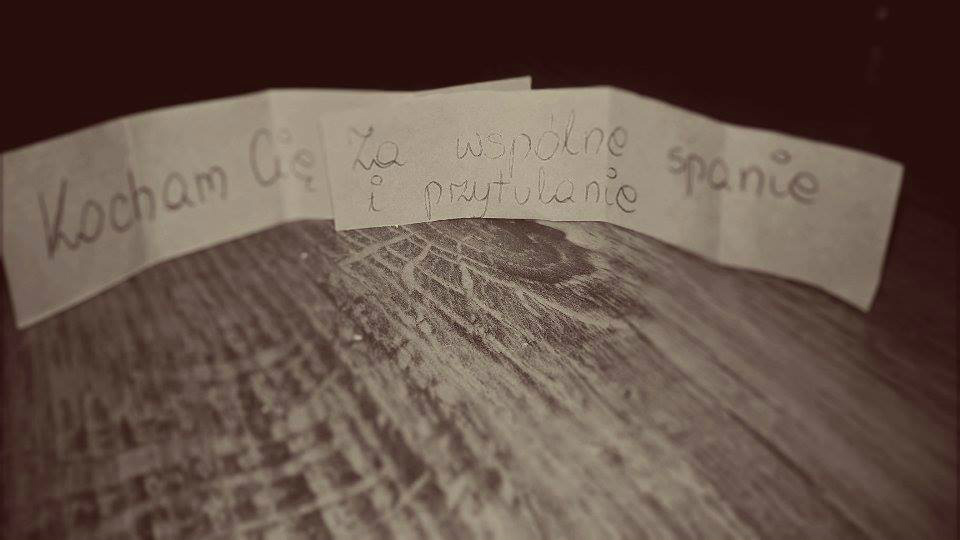 Kocham Cię
Za wspólne spanie
i przytulanie